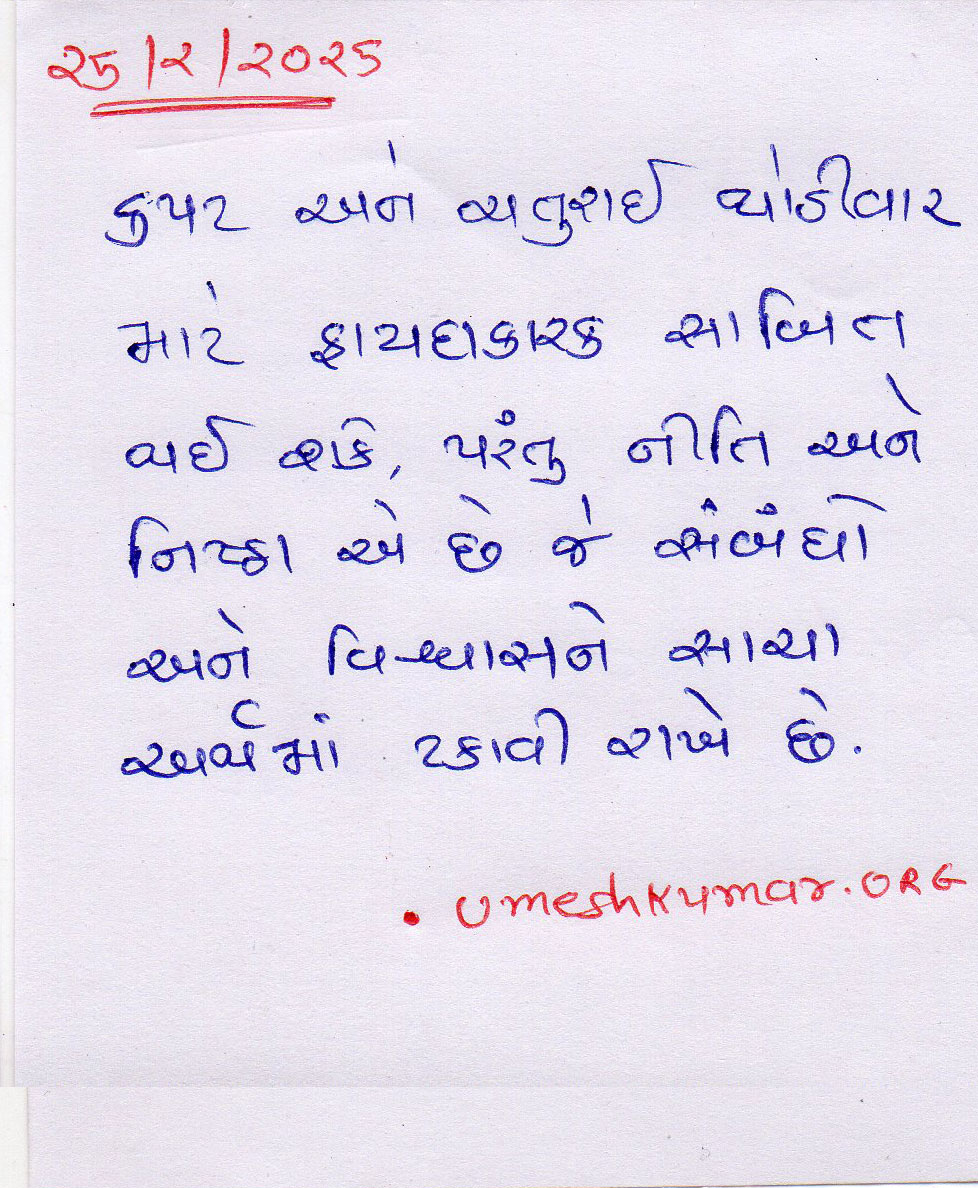 ૨૫/૨/૨૦૨૫
કપટ અને ચતુરાઈ થોડીવાર
માટે ફાયદાકારક સાબિત
થઈ શકે, પરંતુ નીતિ અને
નિષ્ઠા એ છે જે સંબંધો
અને વિશ્વાસને સાચા
અર્થમાં ટકાવી રાખે છે.
• UmeshKumar.ORG